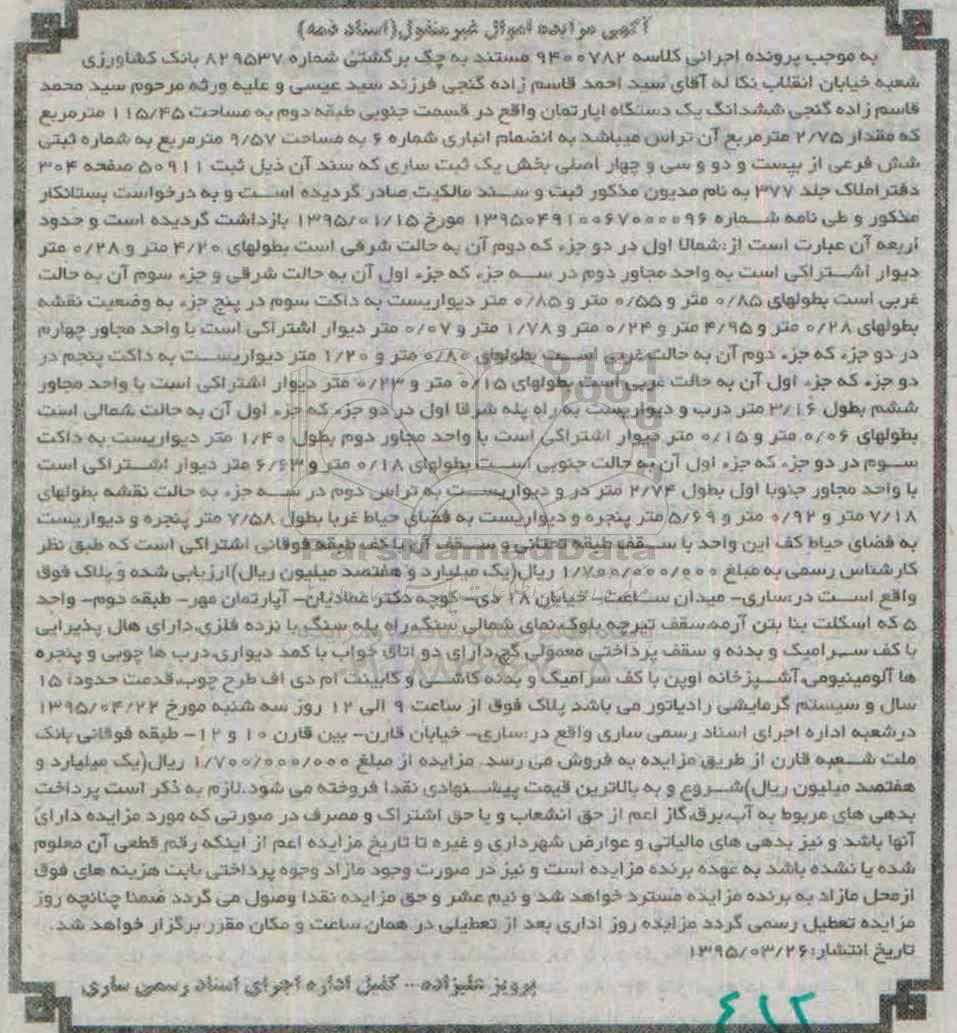 آگهی مزایده اموال غیر منقول(اسناد ذمه)
به موجب پرونده اجرائی کلاسه ۹۴۰۰۷۸۲ مستند به چک برگشتی شماره ۸۲۹۵۳۷ بانک کشاورزی
شعبه خیابان انقلاب نکا له آقای سید احمد قاسم زاده گنجی فرزند سید عیسی و علیه ورثه مرحوم سید محمد
قاسم زاده گنجی ششدانگ یک دستگاه آپارتمان واقع در قسمت جنوبی طبقه دوم به مساحت ۱۱۵/۴۵ مترمربع
که مقدار ۲/۷۵ مترمربع آن تراس میباشد به انضمام انباری شماره ۶ به مساحت ۹/۵۷ مترمربع به شماره ثبتی
شش فرعی از بیست و دو و سی و چهار اصلی بخش یک ثبت ساری که سند آن ذیل ثبت ۵۰۹۱۱ صفحه ۳۰۴
دفتر املاک جلد ۳۷۷ به نام مدیون مذکور ثبت و سند مالکیت صادر گردیده است و به درخواست بستانکار
مذکور و طی نامه شماره ۱۳۹۵۰۴۹۱۰۰۶۷۰۰۰۰۹۶ مورخ ۱۳۹۵/۰۱/۱۵ بازداشت گردیده است و حدود
اربعه آن عبارت است از:شمالا اول در دو جزء که دوم آن به حالت شرقی است بطولهای ۴/۲۰ متر و ۰/۲۸ متر
دیوار اشتراکی است به واحد مجاور دوم در سه جزء که جزء اول آن به حالت شرقی و جزء سوم آن به حالت
غربی است بطولهای ۰/۸۵ متر و ۰/۵۵ متر و ۰/۸۵ متر دیواریست به داکت سوم در پنج جزء به وضعیت نقشه
بطولهای ۰/۲۸ متر و ۴/۹۵ متر و ۰/۲۴ متر و ۱/۷۸ متر و ۰/۰۷ متر دیوار اشتراکی است با واحد مجاور چهارم
در دو جزء که جزء دوم آن به حالت غربی است بطولهای ۰/۸۰ متر و ۱/۲۰ متر دیواریست به داکت پنجم در
دو جزء که جزء اول آن به حالت غربی است بطولهای ۰/۱۵ متر و ۰/۲۳ متر دیوار اشتراکی است با واحد مجاور
ششم بطول ۳/۱۶ متر درب و دیواریست به راه پله شرقا اول در دو جزء که جزء اول آن به حالت شمالی است
بطولهای ۰/۰۶ متر و ۰/۱۵ متر دیوار اشتراکی است با واحد مجاور دوم بطول ۱/۴۰ متر دیواریست به داکت
سوم در دو جزء که جزء اول آن به حالت جنوبی است بطولهای ۰/۱۸ متر و ۶/۶۳ متر دیوار اشتراکی است
با واحد مجاور جنوبا اول بطول ۲/۷۴ متر در و دیواریست به تراس دوم در سه جزء به حالت نقشه بطولهای
۷/۱۸ متر و ۰/۹۲ متر و ۵/۶۹ متر پنجره و دیواریست به فضای حیاط غربا بطول ۷/۵۸ متر پنجره و دیواریست
به فضای حیاط کف این واحد با سقف طبقه تحتانی و سقف آن با کف طبقه فوقانی اشتراکی است که طبق نظر
کارشناس رسمی به مبلغ ۱/۷۰۰/۰۰۰/۰۰۰ ریال(یک میلیارد و هفتصد میلیون ریال)ارزیابی شده و پلاک فوق
واقع است در:ساری- میدان ساعت- خیابان ۱۸ دی- کوچه دکتر عمادیان- آپارتمان مهر- طبقه دوم- واحد
۵ که اسکلت بنا بتن آرمه،سقف تیرچه بلوک،نمای شمالی سنگ،راه پله سنگ با نرده فلزی،دارای هال پذیرایی
با کف سرامیک و بدنه و سقف پرداختی معمولی گچ،دارای دو اتاق خواب با کمد دیواری،درب ها چوبی و پنجره
ها آلومینیومی،آشپزخانه اوپن با کف سرامیک و بدنه کاشی و کابینت ام دی اف طرح چوب،قدمت حدودا ۱۵
سال و سیستم گرمایشی رادیاتور می باشد پلاک فوق از ساعت ۹ الی ۱۲ روز سه شنبه مورخ ۱۳۹۵/۰۴/۲۲
درشعبه اداره اجرای اسناد رسمی ساری واقع در:ساری- خیابان قارن- بین قارن ۱۰ و ۱۲- طبقه فوقانی بانک
ملت شعبه قارن از طریق مزایده به فروش می رسد. مزایده از مبلغ ۱/۷۰۰/۰۰۰/۰۰۰ ریال(یک میلیارد و
هفتصد میلیون ریال)شروع و به بالاترین قیمت پیشنهادی نقدا فروخته می شود.لازم به ذکر است پرداخت
بدهی های مربوط به آب،برق،گاز اعم از حق انشعاب و یا حق اشتراک و مصرف در صورتی که مورد مزایده دارای
آنها باشد و نیز بدهی های مالیاتی و عوارض شهرداری و غیره تا تاریخ مزایده اعم از اینکه رقم قطعی آن معلوم
شده یا نشده باشد به عهده برنده مزایده است و نیز در صورت وجود مازاد وجوه پرداختی بابت هزینه های فوق
ازمحل مازاد به برنده مزایده مسترد خواهد شد و نیم عشر و حق مزایده نقدا وصول می گردد ضمنا چنانچه روز
مزایده تعطیل رسمی گردد مزایده روز اداری بعد از تعطیلی در همان ساعت و مکان مقرر برگزار خواهد شد.
تاریخ انتشار:۱۳۹۵/۰۳/۲۶
پرویز علیزاده-- کفیل اداره اجرای اسناد رسمی ساری
۴۱۲
ParsNamadData